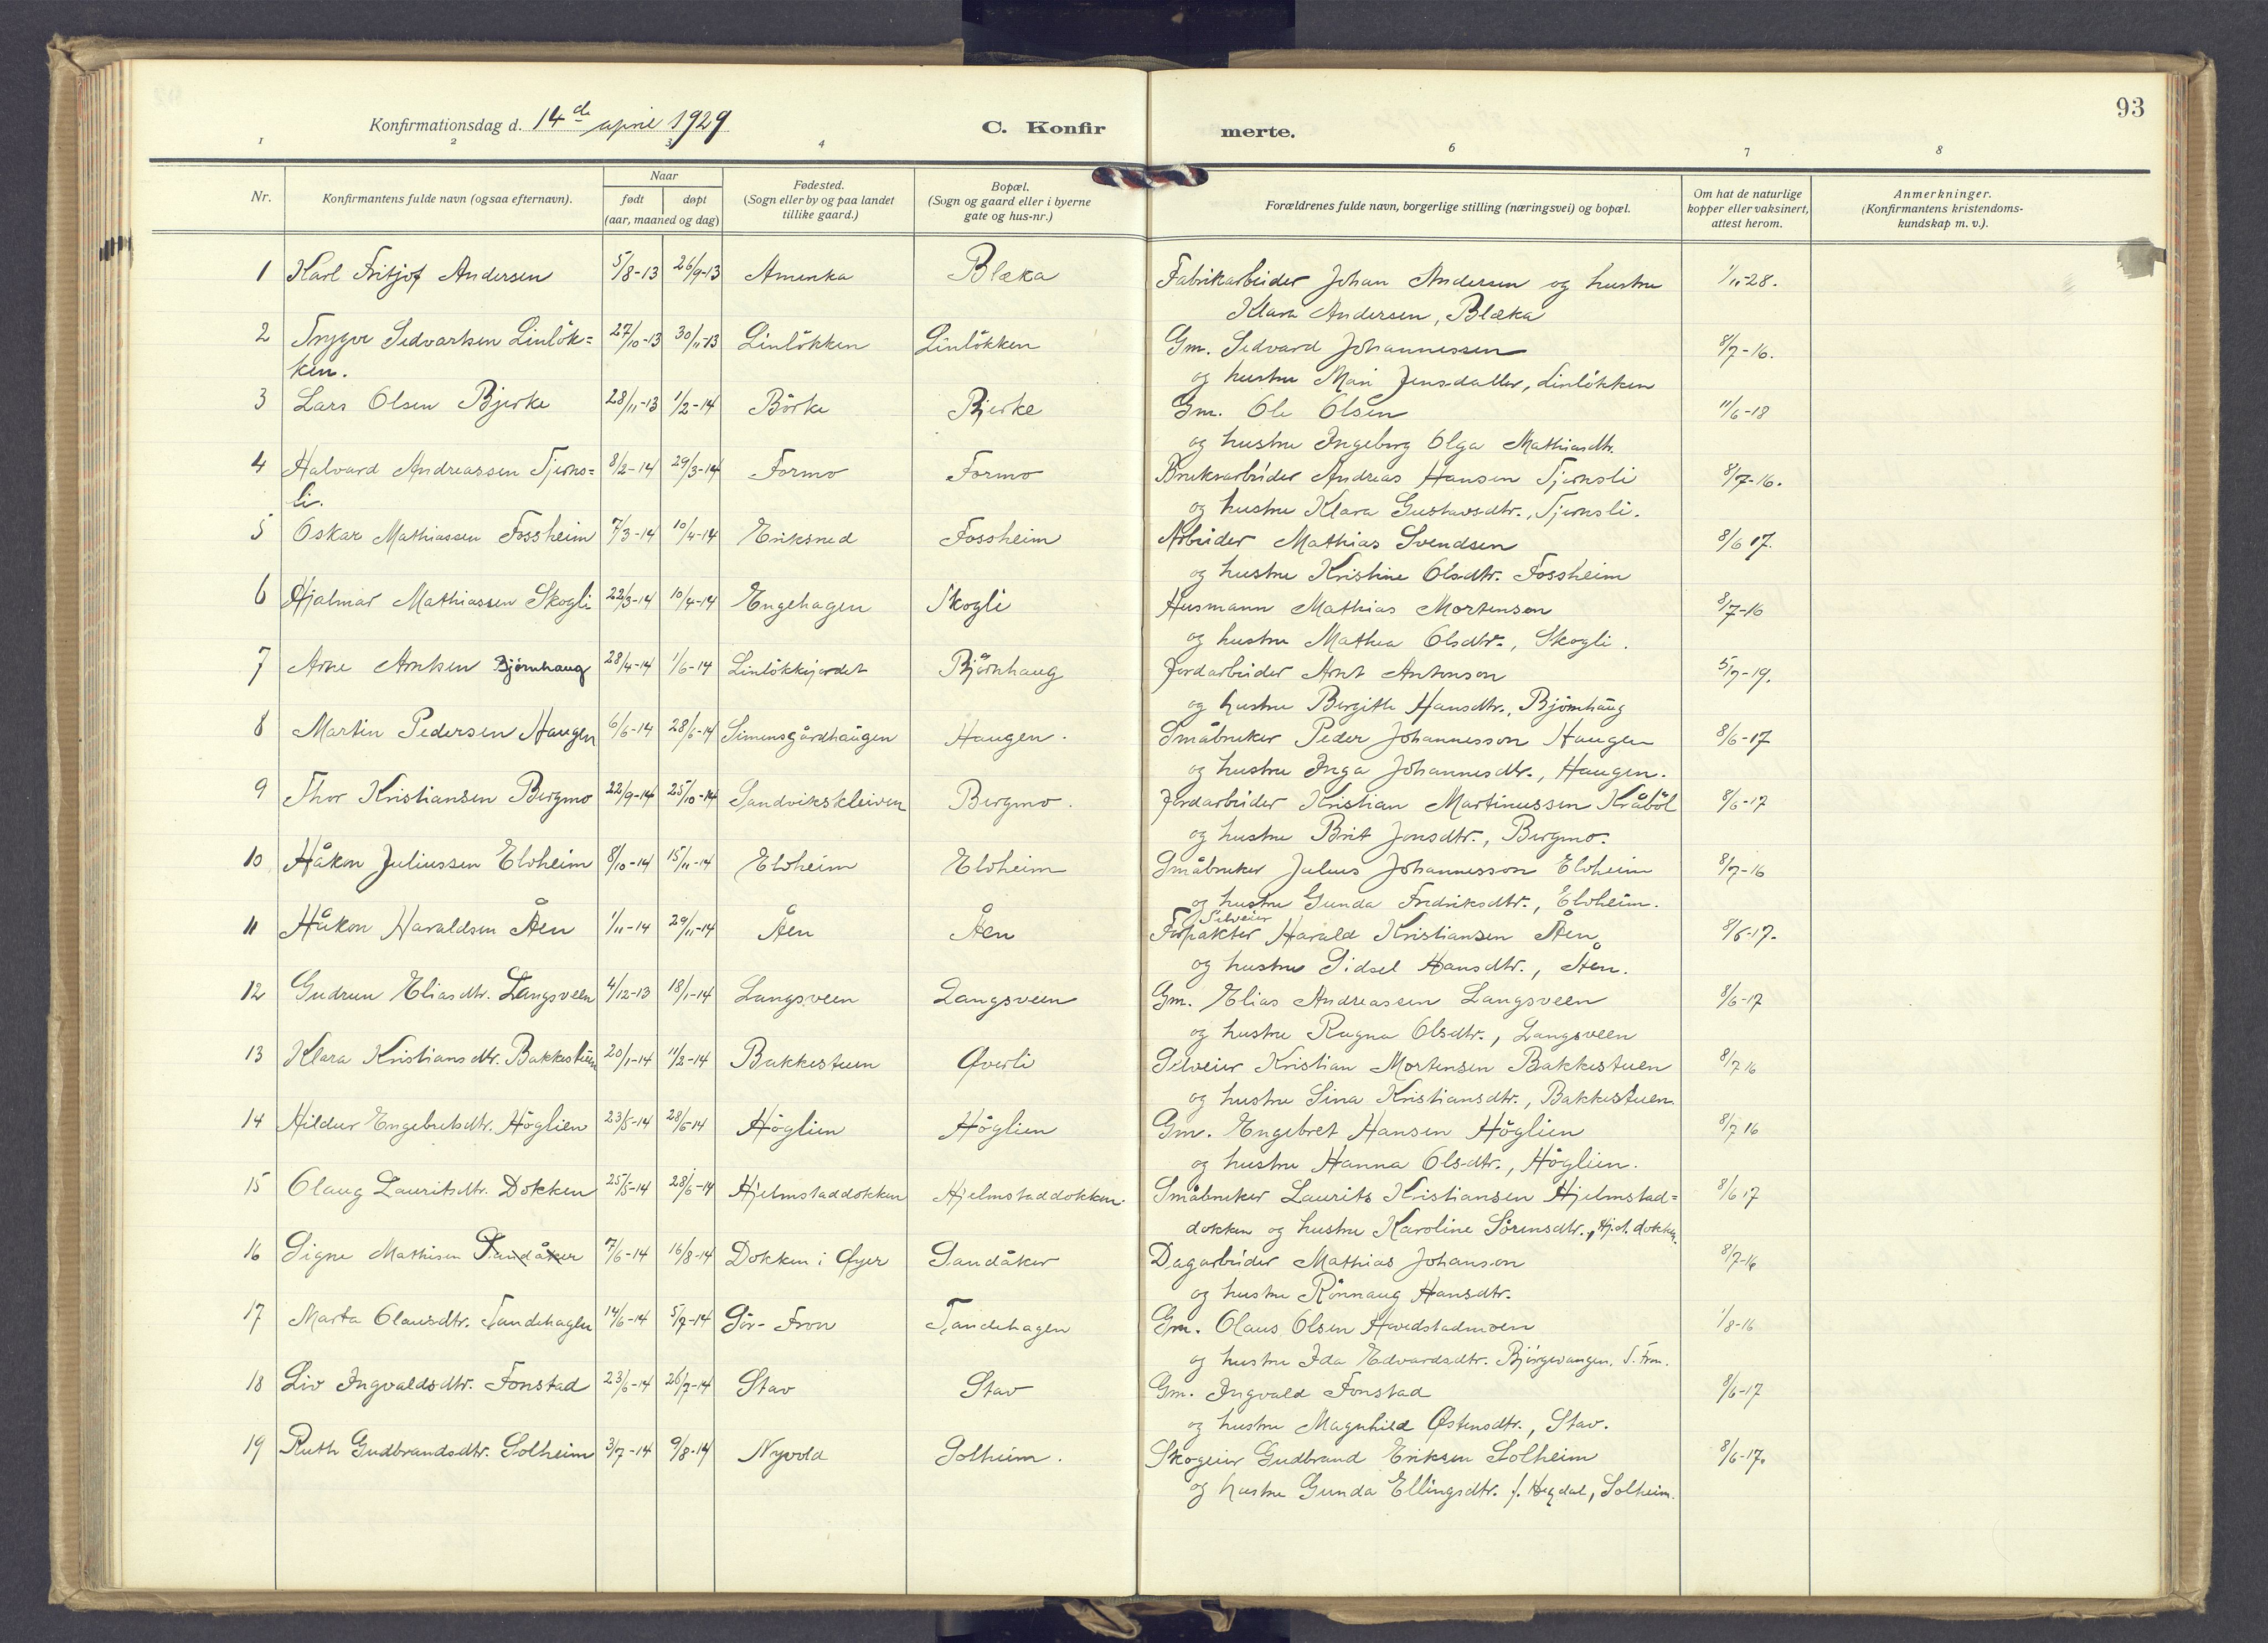 93
Konfirmationsdag d. 14de april 1929
C. Konfir merte.
1 2 3 4 6 7 8
Nr.
Konfirmantens fulde navn (ogsaa efternavn).
Naar
født døpt
(aar, maaned og dag)
Fødested.
(Sogn eller by og paa landet
tillike gaard.)
Bopæl.
(Sogn og gaard eller i byerne
gate og hus-nr.)
Forældrenes fulde navn, borgerlige stilling (næringsvei) og bopæl.
Om hat de naturlige
kopper eller vaksinert,
attest herom.
Anmerkninger.
(Konfirmantens kristendoms-
kundskap m. v.).
1 Karl Fritjof Andersen 5/8-13 26/9-13 Amerika Blæka Fabrikarbeider Johan Andersen og hustru 1/11-28.
Klara Andersen, Blæka
2 Trygve Sedvartsen Linløk= 27/10-13 30/11-13 Linløkken Linløkken Gm. Sedvard Johannessen 8/7-16.
ken. og hustru Mari Jensdatter, Linløkken
3 Lars Olsen Bjerke 28/11-13 1/2-14 Børke Bjerke Gm. Ole Olsen 11/6-18
og hustru Ingeborg Olga Mathiasdtr.
4 Halvard Andreassen Tjerns= 8/2-14 29/3-14 Formo Formo Bruksarbeider Andreas Hansen Tjernsli 8/7-16.
li. og hustru Klara Gustavsdtr., Tjernsli.
5 Oskar Mathiassen Fossheim 7/3-14 10/4-14 Eriksrud Fossheim Arbeider Mathias Svendsen 8/6 17.
og hustru Kristine Olsdtr. Fossheim
6 Hjalmar Mathiassen Skogli 22/3-14 10/4-14 Engehagen Skogli Husmann Mathias Mortensen 8/7-16
og hustru Mathea Olsdtr., Skogli.
7 Arne Arntsen Bjørnhaug 28/4-14 1/6-14 Linløkkjordet Bjørnhaug Jordarbeider Arnt Antonson 5/7-19.
og hustru Bergitte Hansdtr., Bjørnhaug
8 Martin Pedersen Haugen 6/6-14 28/6-14 Simensgårdhaugen Haugen. Småbruker Peder Johannesson Haugen 8/6-17
og hustru Inga Johannesdtr., Haugen.
9 Thor Kristiansen Bergmo 22/9-14 25/10-14 Sandvikskleiven Bergmo. Jordarbeider Kristian Martinussen Kråbøl 8/6-17
og hustru Brit Jonsdtr., Bergmo.
10 Håkon Juliussen Elvheim 8/10-14 15/11-14 Elvheim Elvheim Småbruker Julius Johannesson Elvheim 8/7-16
og hustru Gunda Fredriksdtr., Elvheim.
Selveier
11 Håkon Haraldsen Åen 1/11-14 29/11-14 Åen Åen Forpakter Harald Kristiansen Åen 8/6-17.
og hustru Sidsel Hansdtr., Åen.
12 Gudrun Eliasdtr. Langsveen 4/12-13 18/1-14 Langsveen Langsveen Gm. Elias Andreassen Langsveen 8/6-17
og hustru Ragna Olsdtr., Langsveen
13 Klara Kristiansdtr. Bakkestuen 20/1-14 11/2-14 Bakkestuen Øverli Selveier Kristian Mortensen Bakkestuen 8/7 16
og hustru Sina Kristiansdtr., Bakkestuen.
14 Hildur Engebretsdtr. Høglien 23/5-14 28/6-14 Høglien Høglien Gm. Engebret Hansen Høglien 8/7 16
og hustru Hanna Olsdtr., Høglien.
15 Olaug Lauritsdtr. Dokken 25/5-14 28/6-14 Hjelmstaddokken Hjelmstaddokken. Småbruker Laurits Kristiansen Hjelmstad= 8/6 17
dokken og hustru Karoline Sørensdtr., Hj.st. dokken.
16 Signe Mathisen Sandåker 7/6-14 16/8-14 Dokken i Øyer Sandåker Dagarbeider Mathias Johanson 8/7-16
og hustru Rønnaug Hansdtr.
17 Marta Olausdtr. Tandehagen 14/6-14 5/7-14 Sør-Fron Tandehagen Gm. Olaus Olsen Hvedstadmoen 1/8-16
og hustru Ida Edvardsdtr. Bjørgevangen, S. Fron.
18 Liv Ingvaldsdtr. Fonstad 23/6-14 26/7-14 Stav Stav Gm. Ingvald Fonstad 8/6-17
og hustru Magnhild Østensdtr., Stav.
19 Ruth Gudbrandsdtr. Solheim 3/7-14 9/8-14 Nyvold Solheim. Skogeier Gudbrand Eriksen Solheim 8/6-17.
og hustru Gunda Ellingsdtr. f. Hegdal, Solheim.